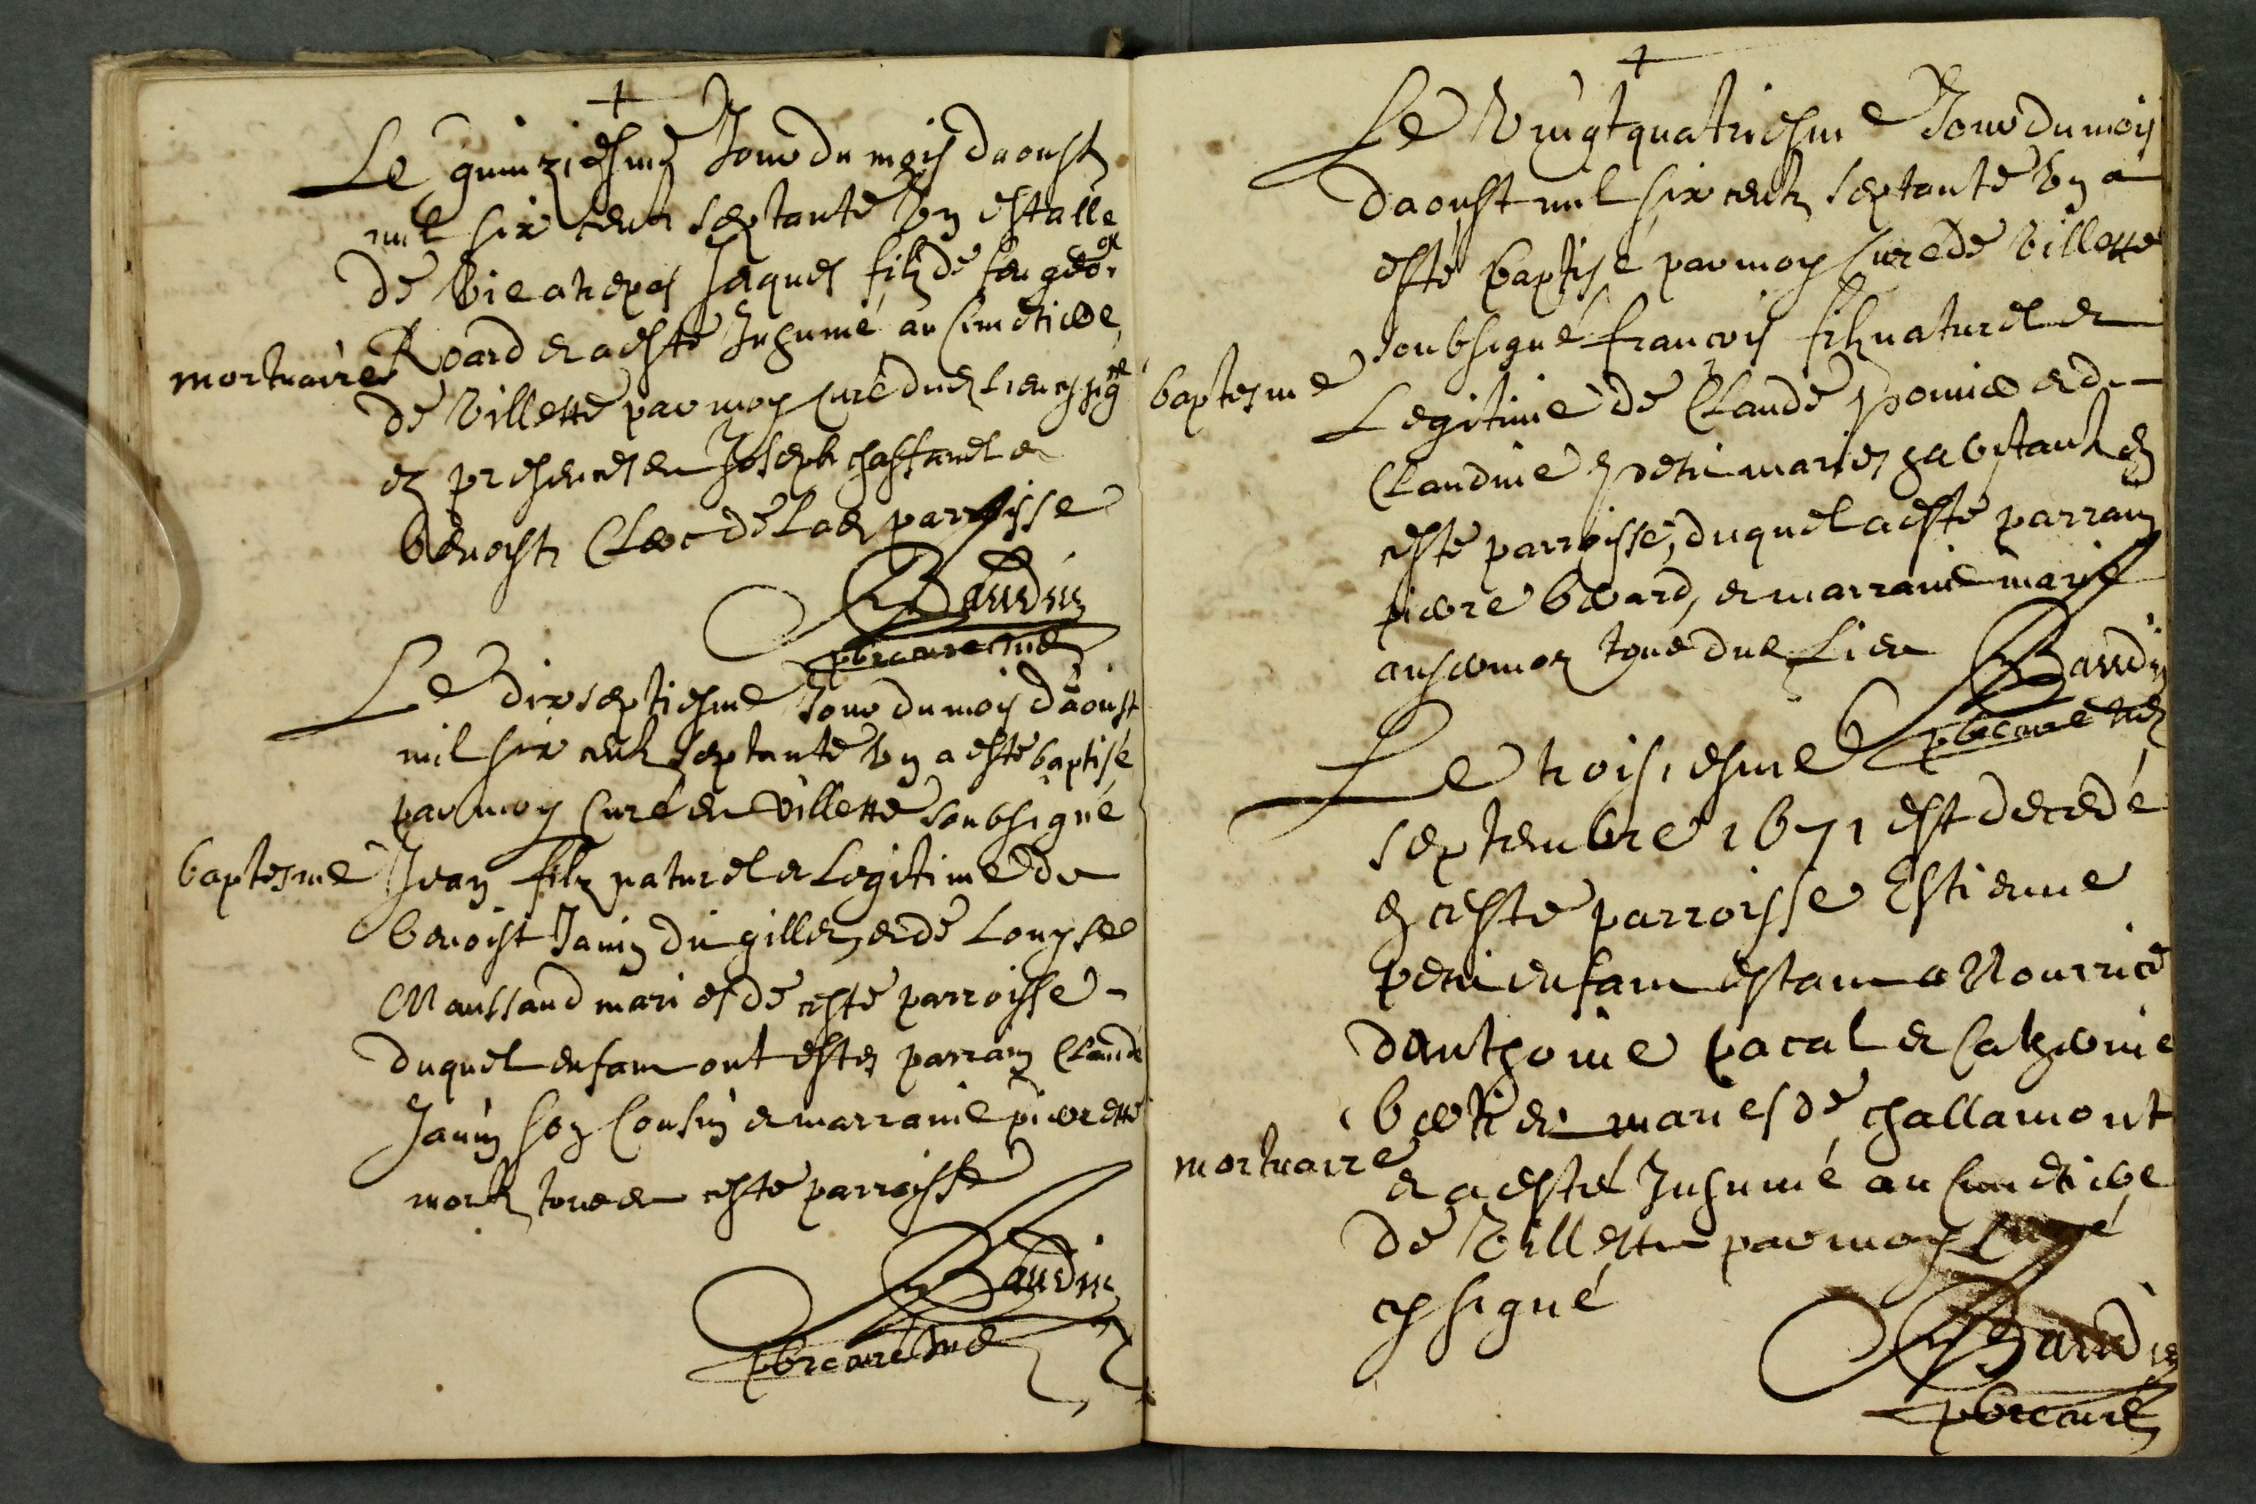 +
Le quinziesme Jour du mois daoust
mil six cents septante Un est allé
de Vie a trepas Jaques filz de feu geo.ge
mortuaire
Roard et a esté Inhumé au Cimetiere
de Villette par moy curé dud lieu cy sigé
ez presences de Joseph chastanel et
benoist Clerc de lad parroisse
Baudin
pbre curé susd
Le dixseptiesme Jour du mois daoust
mil six cents septante Un a esté baptisé
par moy Curé de Villette soubsigné
baptesme
Jean filz naturel et Legitime de
benoist Janin du giller, et de Louyse
Maussaud mariés de ceste parroisse
duquel enfant ont estes parrain Claude
Janin son Cousin et marraine pierrette
morel tous de ceste parroisse
Baudin
pbre curé susd
+
Le Vingtquatriesme Jour du mois
daoust mil six cents septante Un a
esté baptisé par moy Curé de Villette
soubsigné francois filz naturel et
baptesme
Legitime de Claude et de
Claudine petit mariés habitants en
ceste parroisse, duquel a esté parrain
pierre berard, et marraine marie
tous dud Lieu
Baudin
pbre curé susd
Le troisiesme
septembre 1671 est decedé
en ceste parroisse Estienne
petit enfant estant a Nourrice
danthoine pacal et Catherine
bertier mariés de challamont
mortuaire
et a esté Inhumé au Cimetiere
de Villette par moy Curé
cy signé
Baudin
pbre curé